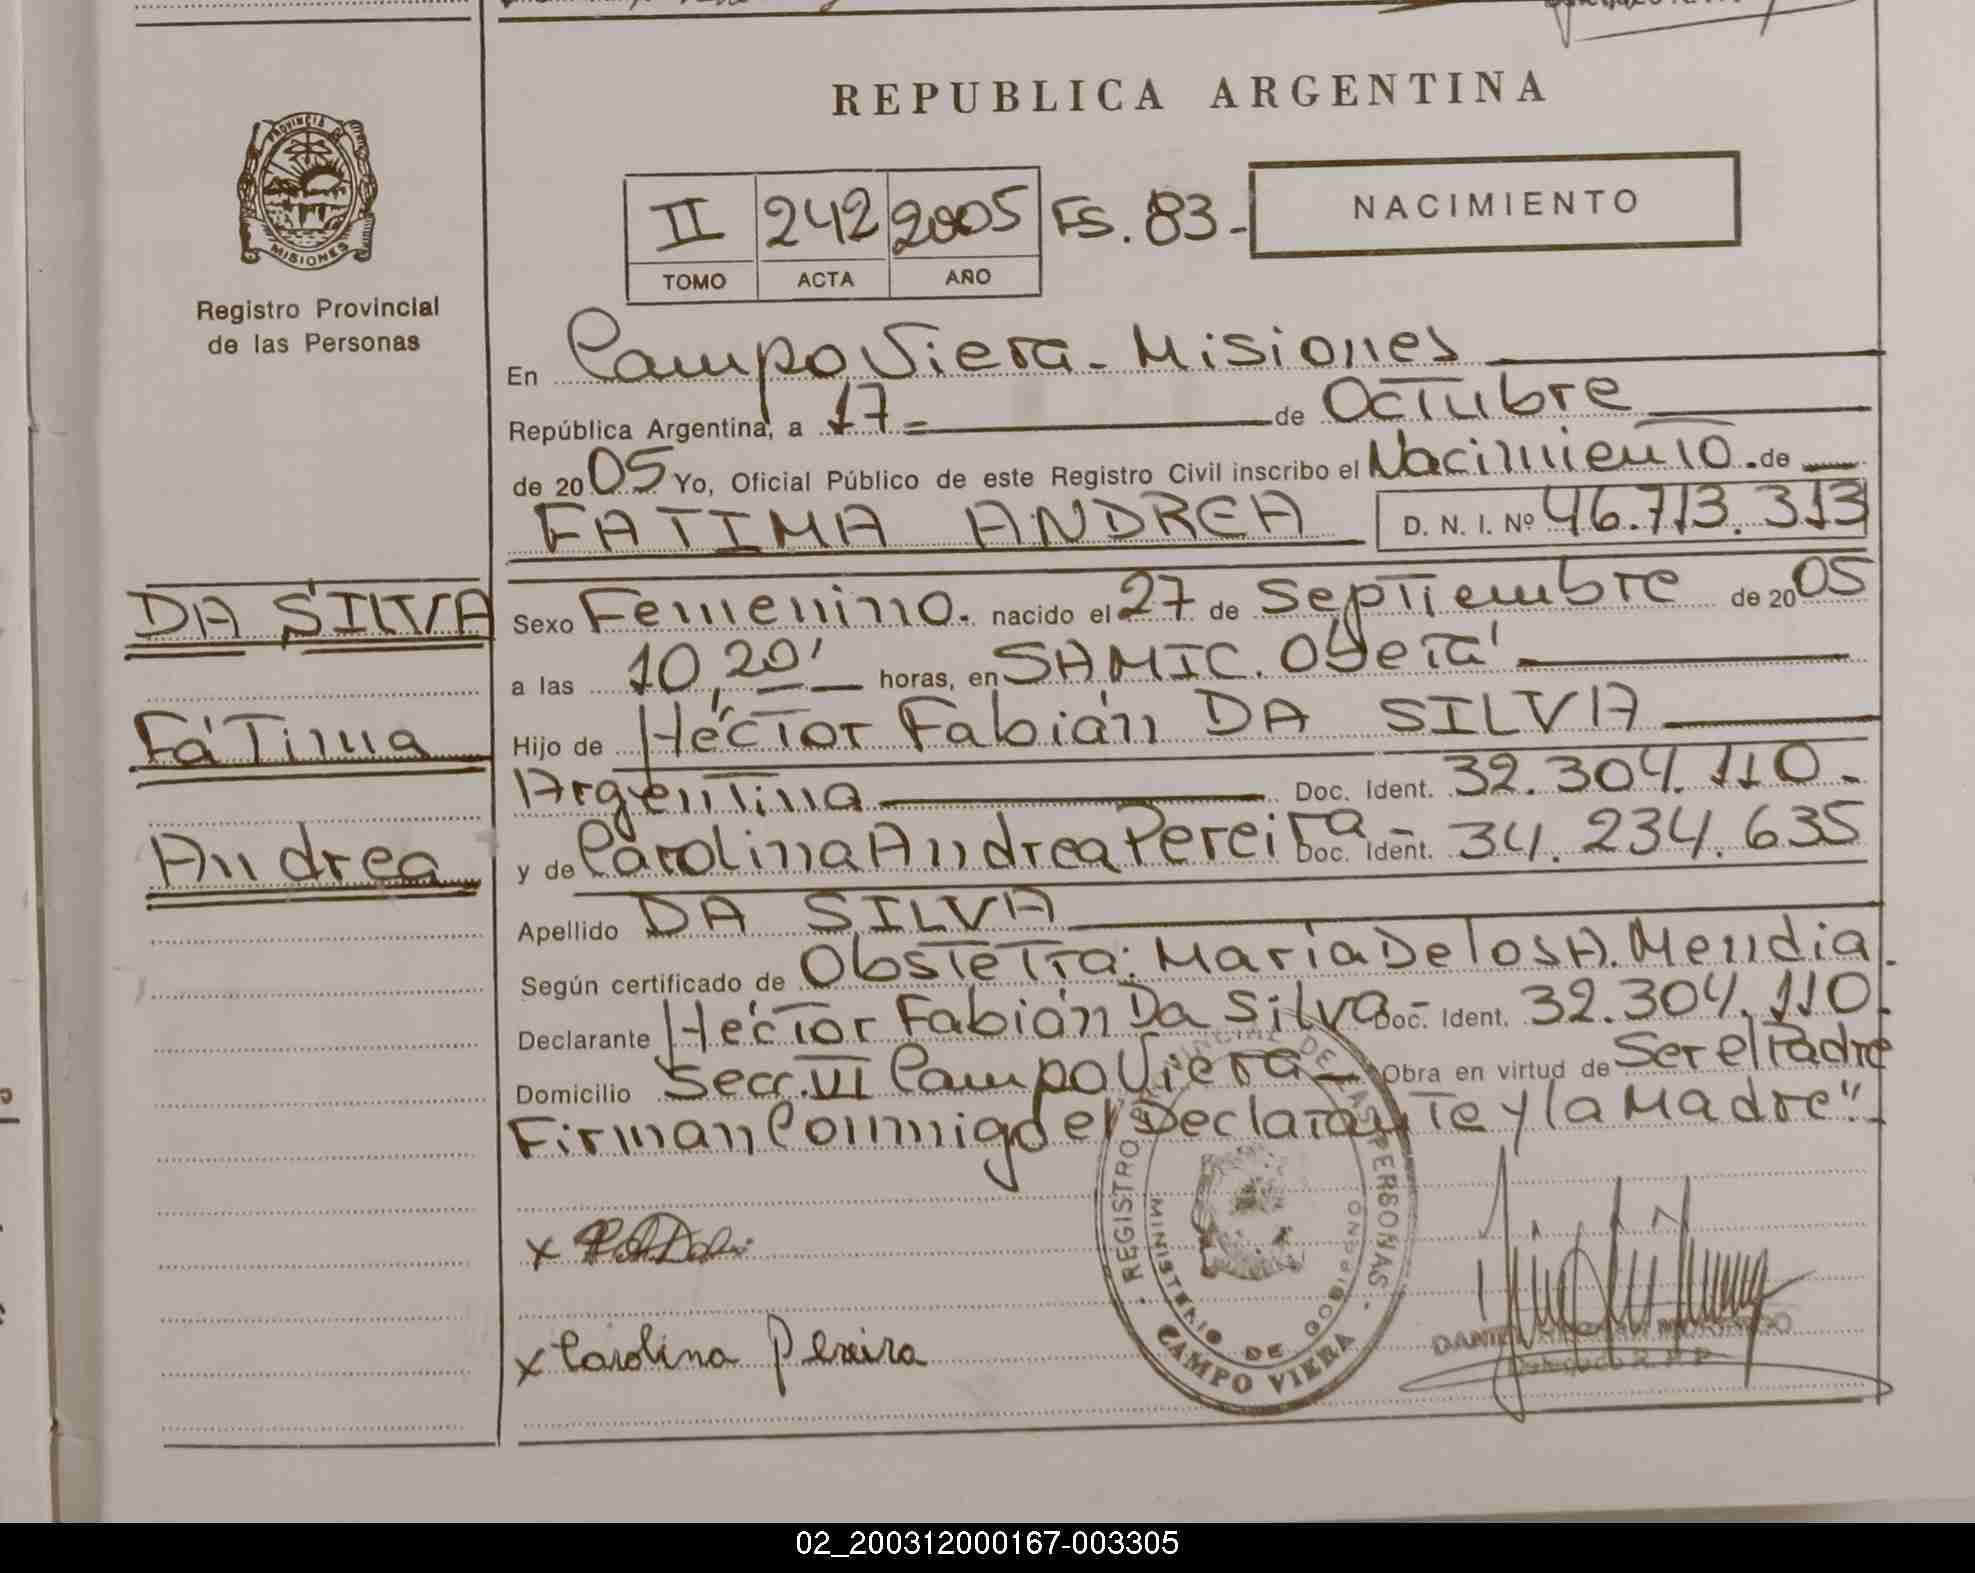 REPUBLICA ARGENTINA
PROVINCIA DE
MISIONES
Registro Provincial
de las Personas
II 242 2005 FS. 83.-
TOMO ACTA AÑO
NACIMIENTO
En Campo Viera - Misiones
República Argentina, a 17 = de Octubre
de 2005 Yo, Oficial Público de este Registro Civil inscribo el Nacimiento. de
FATIMA ANDREA D. N. I. Nº 46.713.313
DA SILVA
Fátima
Andrea
Sexo Femenino. nacido el 27 de Septiembre de 2005
a las 10,20' horas, en SAMIC. Oberá
Hijo de Héctor Fabián DA SILVA
Argentina Doc. Ident. 32.304.110.-
y de Carolina Andrea Pereira - Doc. Ident. 34.234.635
Apellido DA SILVA
Según certificado de Obstetra: Maria De los A. Mendia.
Declarante Héctor Fabián Da Silva - Doc. Ident. 32.304.110.
Domicilio Secc. VI Campo Viera - Obra en virtud de Ser el Padre
Firman Conmigo el Declarante y la Madre".-
x
x Carolina Pereira
REGISTRO PROVINCIAL DE LAS PERSONAS
MINISTERIO DE GOBIERNO
CAMPO VIERA
02_200312000167-003305